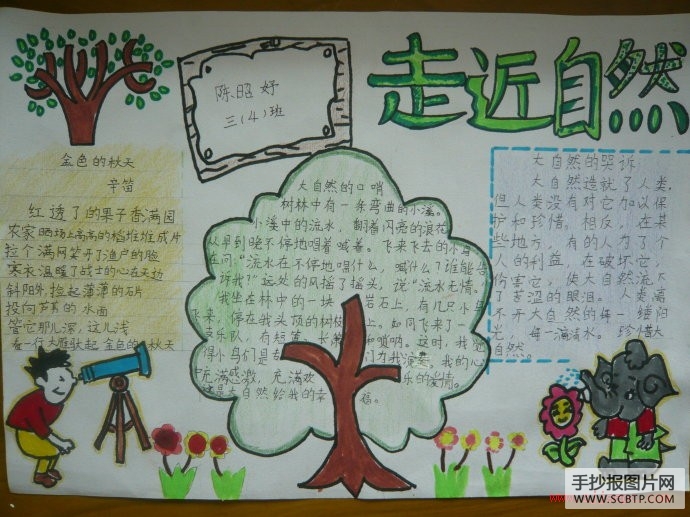 走近自然
陈昭妤
三(4)班
金色的秋天
辛笛
红透了的果子香满园
农家晒场上高高的稻堆堆成片
捡个满网笑开了渔户的脸
寒衣温暖了战士的心在天边
斜阳外捡起薄薄的石片
投向芦苇的水面
管它那儿深，这儿浅
看一行大雁驮起金色的秋天
大自然的口哨
树林中有一条弯曲的小溪。
小溪中的流水，翻着闪亮的浪花
从早到晚不停地唱着喊着。飞来飞去的小鸟
在问“流水在不停地唱什么，喊什么？谁能告
诉我？”远处的风摇了摇头，说“流水无情。”
我坐在林中的一块岩石上，有几只小鸟
飞来，停在我头顶的树枝上。如同飞来了一
支乐队，有短笛，长箫和唢呐。这时，我觉
得小鸟们是
为我演奏。我的心
中充满感激，充满欢乐的爱情。
大自然给我的幸福。
大自然的哭诉
大自然造就了人类，
但人类没有对它加以保
护和珍惜。相反，在某
些地方，有的人为了个
人的利益，在破坏它，
伤害它，使大自然流下
了苦涩的眼泪。人类离
不开大自然的每一缕阳
光，每一滴清水。珍惜大
自然。
手抄报图片网
WWW.SCBTP.COM